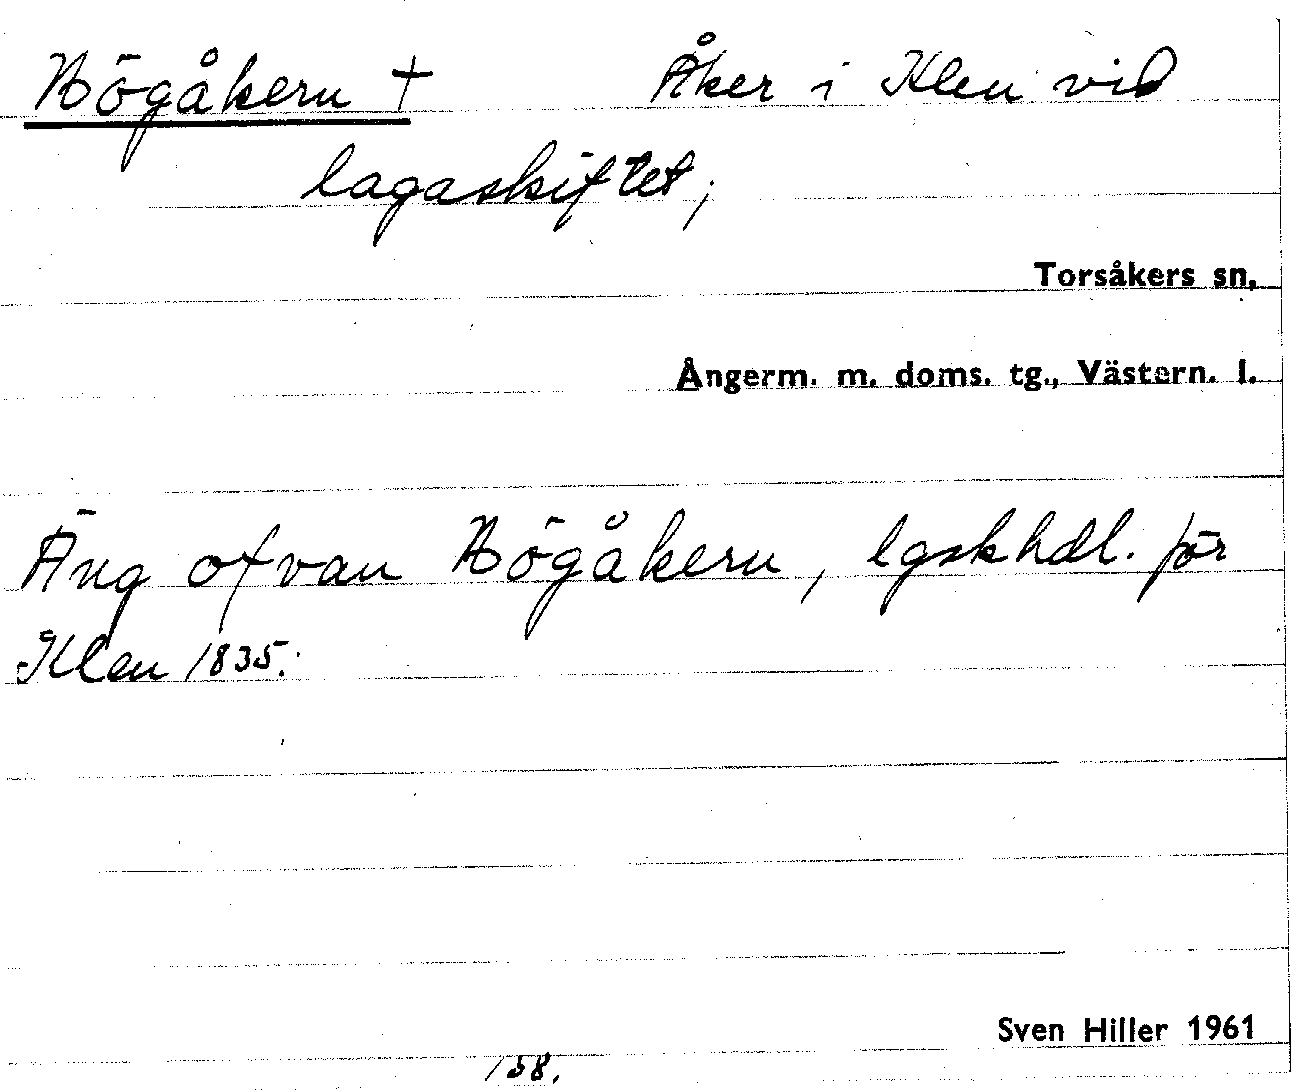 Högåkern +	Åker i Klen vid
lagaskiftet;
Torsåkers sn,
Ångerm. m. doms. tg., Västern. l.
Äng ofvan Högåkern, lgskhdl. för
Klen 1835.
Sven Hiller 1961
158.